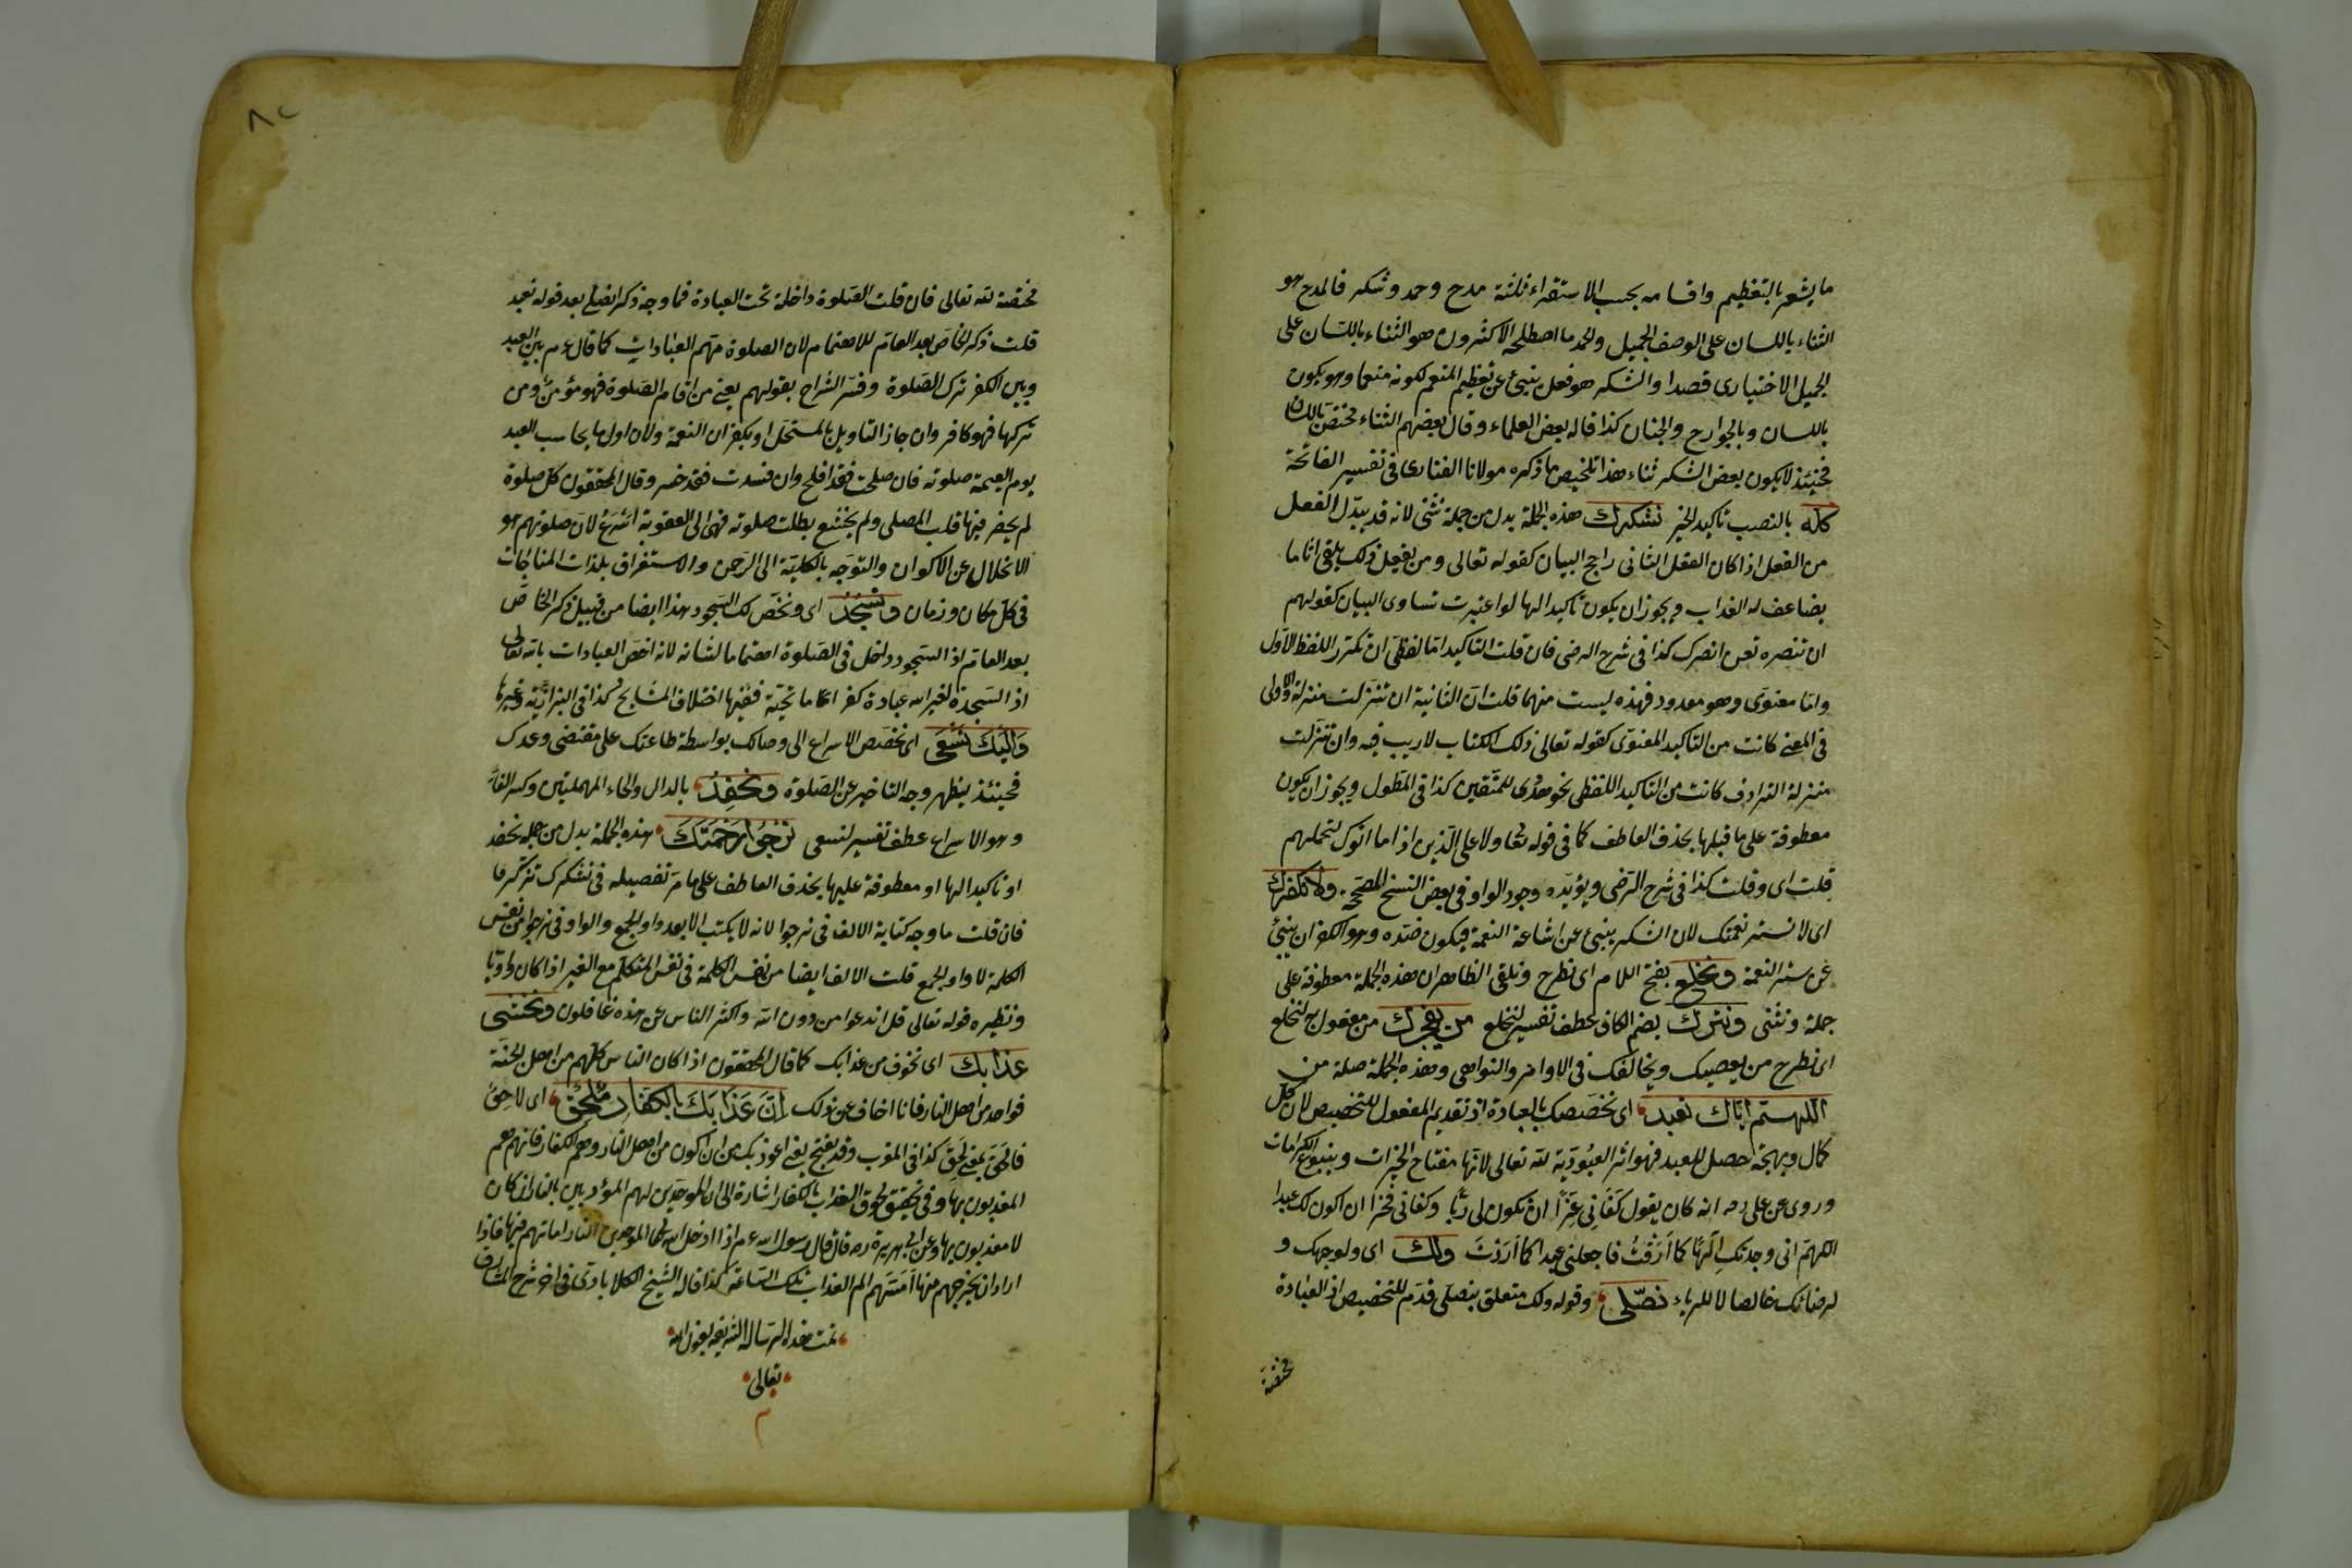 ما يشعر بالتعظيم واقسامه بحسب الاستقراء ثلثة مدح وحمد وشكر فالمدح هو
الثناء باللسان على الوصف الجميل والحمد ما اصطلحه الاكثرون هو الثناء باللسان على
الجميل الاختيارى قصدا والشكر هو فعل ينبئ عن تعظيم المنعم لكونه منعما وهو يكون
باللسان وبالجوارح والجنان كذا قاله بعض العلماء وقال بعضهم الثناء مختص باللسان
فحينئذ لا يكون بعض الشكر ثناء هذا تلخيص ما ذكره مولانا الفنارى فى تفسير الفاتحة
كله بالنصب تأكيد الخير نشكرك هذه الجملة بدل من جملة نثنى لانه قد يبدّل الفعل
من الفعل اذا كان الفعل الثانى راجح البيان كقوله تعالى ومن يفعل ذلك يلقى اثاما
يضاعف له العذاب ويجوز ان يكون تأكيدا لها لو اعتبرت تساوى البيان كقولهم
ان تنصره تعن انصرك كذا فى شرح الرضى فان قلت التاكيد امّا لفظىّ ان تكرر اللفظ الاوّل
وامّا معنوىّ وهو معدود فهذه ليست منهما قلت انّ الثانية ان تنزلت منزلة الاولى
فى المعنى كانت من التاكيد المعنوى كقوله تعالى ذلك الكتاب لا ريب فيه وان تنزّلت
منزلة الترادف كانت من التاكيد اللفظى نحو هدًى للمتّقين كذا فى المطوّل ويجوز ان يكون
معطوفة على ما قبلها بحذف العاطف كما فى قوله تعا ولا على الّذين اذا ما اتوك لتحملهم
قلت اى وقلت كذا فى شرح الرّضى ويؤيّده وجود الواو فى بعض النسخ المصحّحة ولا نكفرك
اى لا نستر نعمتك لان الشكر ينبئ عن اشاعة النعمة فيكون ضدّه وهو الكفران ينبئ
عن ستر النعمة ونخلع بفتح اللام اى نطرح ونلقى الظاهر ان هذه الجملة معطوفة على
جملة ونثنى ونترك بضم الكاف عطف تفسير لنخلع من يفجرك من مفعول لنخلع
اى نطرح من يعصيك ويخالفك فى الاوامر والنواهى وهذه الجملة صلة من
اللّهمّ ايّاك نعبد اى نخصّصك بالعبادة اذ تقديم المفعول للتخصيص لان كل
كمال وبهجة حصل للعبد فهو اثر العبوديّة لله تعالى لانّها مفتاح الخيرات وينبوع الكرامات
وروى عن على رضه انه كان يقول كَفَانِى عِزًّا ان تكون لى ربًّا وكفانى فخرا ان اكون لك عبدا
اللهمّ انى وجدتك الٰهًا كما اَرَدْتُ فاجعلنى عبدا كما اَرَدْتَ ولك اى ولوجهك و
لرضائك خالصا لا للرياء نصلّى وقوله ولك متعلق بنصلى قدّم للتخصيص اذ العبادة
مختصّة
مختصّة لله تعالى فان قلت الصّلوة داخلة تحت العبادة فما وجه ذكر نصلى بعد قوله نعبد
قلت ذكر الخاصّ بعد العامّ للاهتمام لان الصلوة مهمّ العبادات كما قال ءم بين العبد
وبين الكفر ترك الصّلوة وفسّر الشراح بقولهم يعنى من اقام الصّلوة فهو مؤمن ومن
تركها فهو كافر وان جاز التاويل بالمستحلّ او بكفران النعمة ولان اول ما يحاسب العبد
يوم القيمة صلوته فان صلحت فقد افلح وان فسدت فقد خسر وقال المحققون كلّ صلوة
لم يحضر فيها قلب المصلى ولم يخشع بطلت صلوته فهى الى العقوبة اَسْرَعُ لانّ صلوتهم هو
الانخلال عن الاكوان والتوجّه بالكليّة الى الرّحمن والاستغراق بلذات المناجات
فى كل مكان وزمان ونسجد اى ونخصّ لك السّجود هذا ايضا من قبيل ذكر الخاصّ
بعد العامّ اذ السّجود داخل فى الصّلوة اهتماما لشانه لانه اخصّ العبادات بالله تعالى
اذ السّجدة لغير الله عبادة كفر امّا تحيّة ففيها اختلاف المشايخ كذا فى البزازيّة وغيرها
وَاِلَيْكَ نَسْعَى اى نخصّص الاسراع الى وصالك بواسطة طاعتك على مقتضى وعدك
فحينئذ يظهر وجه التاخير عن الصّلوة ونحفد بالدال والحاء المهملتين وكسر الفاء
وهو الاسراع عطف تفسير لنسعى نرجوا رحمتك هذه الجملة بدل من جملة نحفد
او تأكيدا لها او معطوفة عليها بحذف العاطف على ما مرّ تفصيله فى نشكرك تذكّر فا
فان قلت ما وجه كتابة الالف فى نرجوا لانه لا يكتب الا بعد واو الجمع والواو فى نرجوا من نفس
الكلمة لا واو الجمع قلت الالف ايضا من نفس الكلمة فى نفس المتكلّم مع الغير اذا كان واويّا
ونظيره قوله تعالى قل اندعوا من دون الله واكثر الناس عن هذه غافلون ونخشى
عذابك اى نخوف من عذابك كما قال المحققون اذا كان الناس كلّهم من اهل الجنّة
فواحد من اهل النار فانا اخاف عن ذلك اِنَّ عَذَابَكَ بِالكفّارِ مُلْحِقٌ اى لاحِقٌ
فالحق بمعنى لحِق كذا فى المغرب وقد يفتح يعنى اعوذ بك من ان اكون من اهل النار وهم الكفار فانهم هم
المعذبون بها وفى تحقيق لحوق العذاب بالكفار اشارة الى ان الموحّدين لهم المؤدبين بالنار كان
لا معذبون بها وعن ابى هريرة رضه قال قال رسول الله ءم اذا ادخل الله تعا الموحدين النار اماتهم فيها فاذا
اراد ان يخرجهم منها اَمَسَّهم الم العذاب تلك السّاعة كذا قاله الشيخ الكلابادى فى اخر شرح المشارق
تمت هذه الرسالة الشريفة بعون الله
تعالى
م